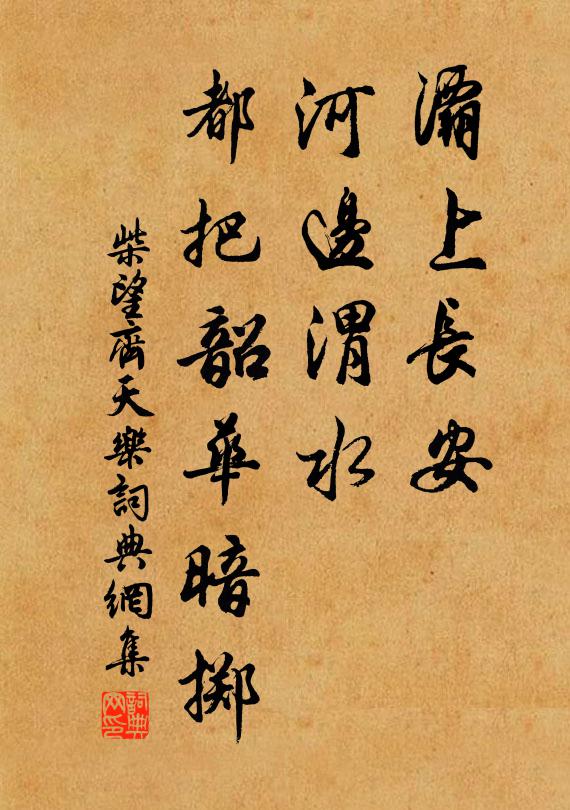 灞上長安
河邊渭水
都把韶華暗擲
柴望齊天樂詞典網集
詞典
网印